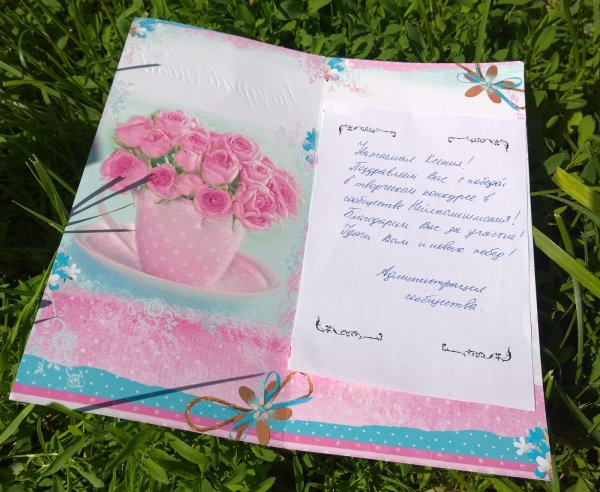 Поздравляю
Уважаемая Ксения!
Поздравляем Вас с победой
в творческом конкурсе в
сообществе Нейлпомешмания!
Благодарим Вас за участие!
Удачи Вам и новых побед!
Администрация
сообщества.